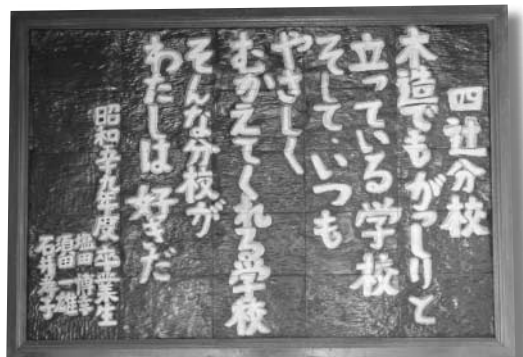 四辻分校
木造でもがっしりと
立っている学校
そして、いつも
やさしく
むかえてくれる学校
そんな分校が
わたしは好きだ
昭和五十九年度卒業生
池田 博幸
須田 一雄
石井 孝子